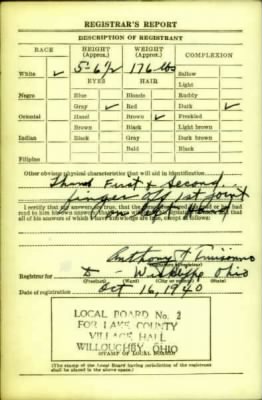 REGISTRAR'S REPORT
DESCRIPTION OF REGISTRANT
RACE HEIGHT (Approx.) WEIGHT (Approx.) COMPLEXION
White ✓ 5-6½ 176 lbs Sallow
EYES HAIR Light
Negro Blue Blonde Ruddy
Gray ✓ Red Dark ✓
Oriental Hazel Brown ✓ Freckled
Brown Black Light brown
Indian Black Gray Dark brown
Bald Black
Filipino
Other obvious physical characteristics that will aid in identification
First & Second
fingers off 1st joint
on left Hand
I certify that my answers are true; that the
read to him his own answers; that
all of his answers of which I have knowledge are true, except as follows:
Anthony
Registrar for - Ohio
(Precinct) (Ward) (City or county) (State)
Date of registration Oct 16, 1940
LOCAL BOARD No. 2
FOR LAKE COUNTY
VILLAGE HALL
WILLOUGHBY, OHIO
STAMP OF LOCAL BOARD
(The stamp of the Local Board having jurisdiction of the registrant
shall be placed in the above space.)